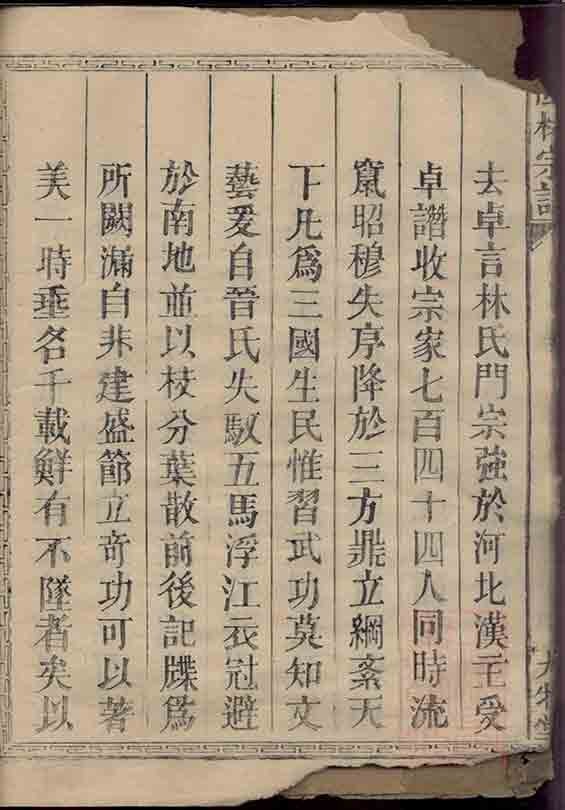 去卓言林氏門宗強於河北漢王受
卓譖收宗家七百四十四人同時流
竄昭穆失序降於三方鼎立綱紊天
下凡為三國生民惟習武功莫知文
藝爰自晉氏失馭五馬浮江衣冠避
於南地並以枝分葉散前後記牒為
所闕漏自非建盛節立奇功可以著
美一時垂名千載鮮有不墜者矣以